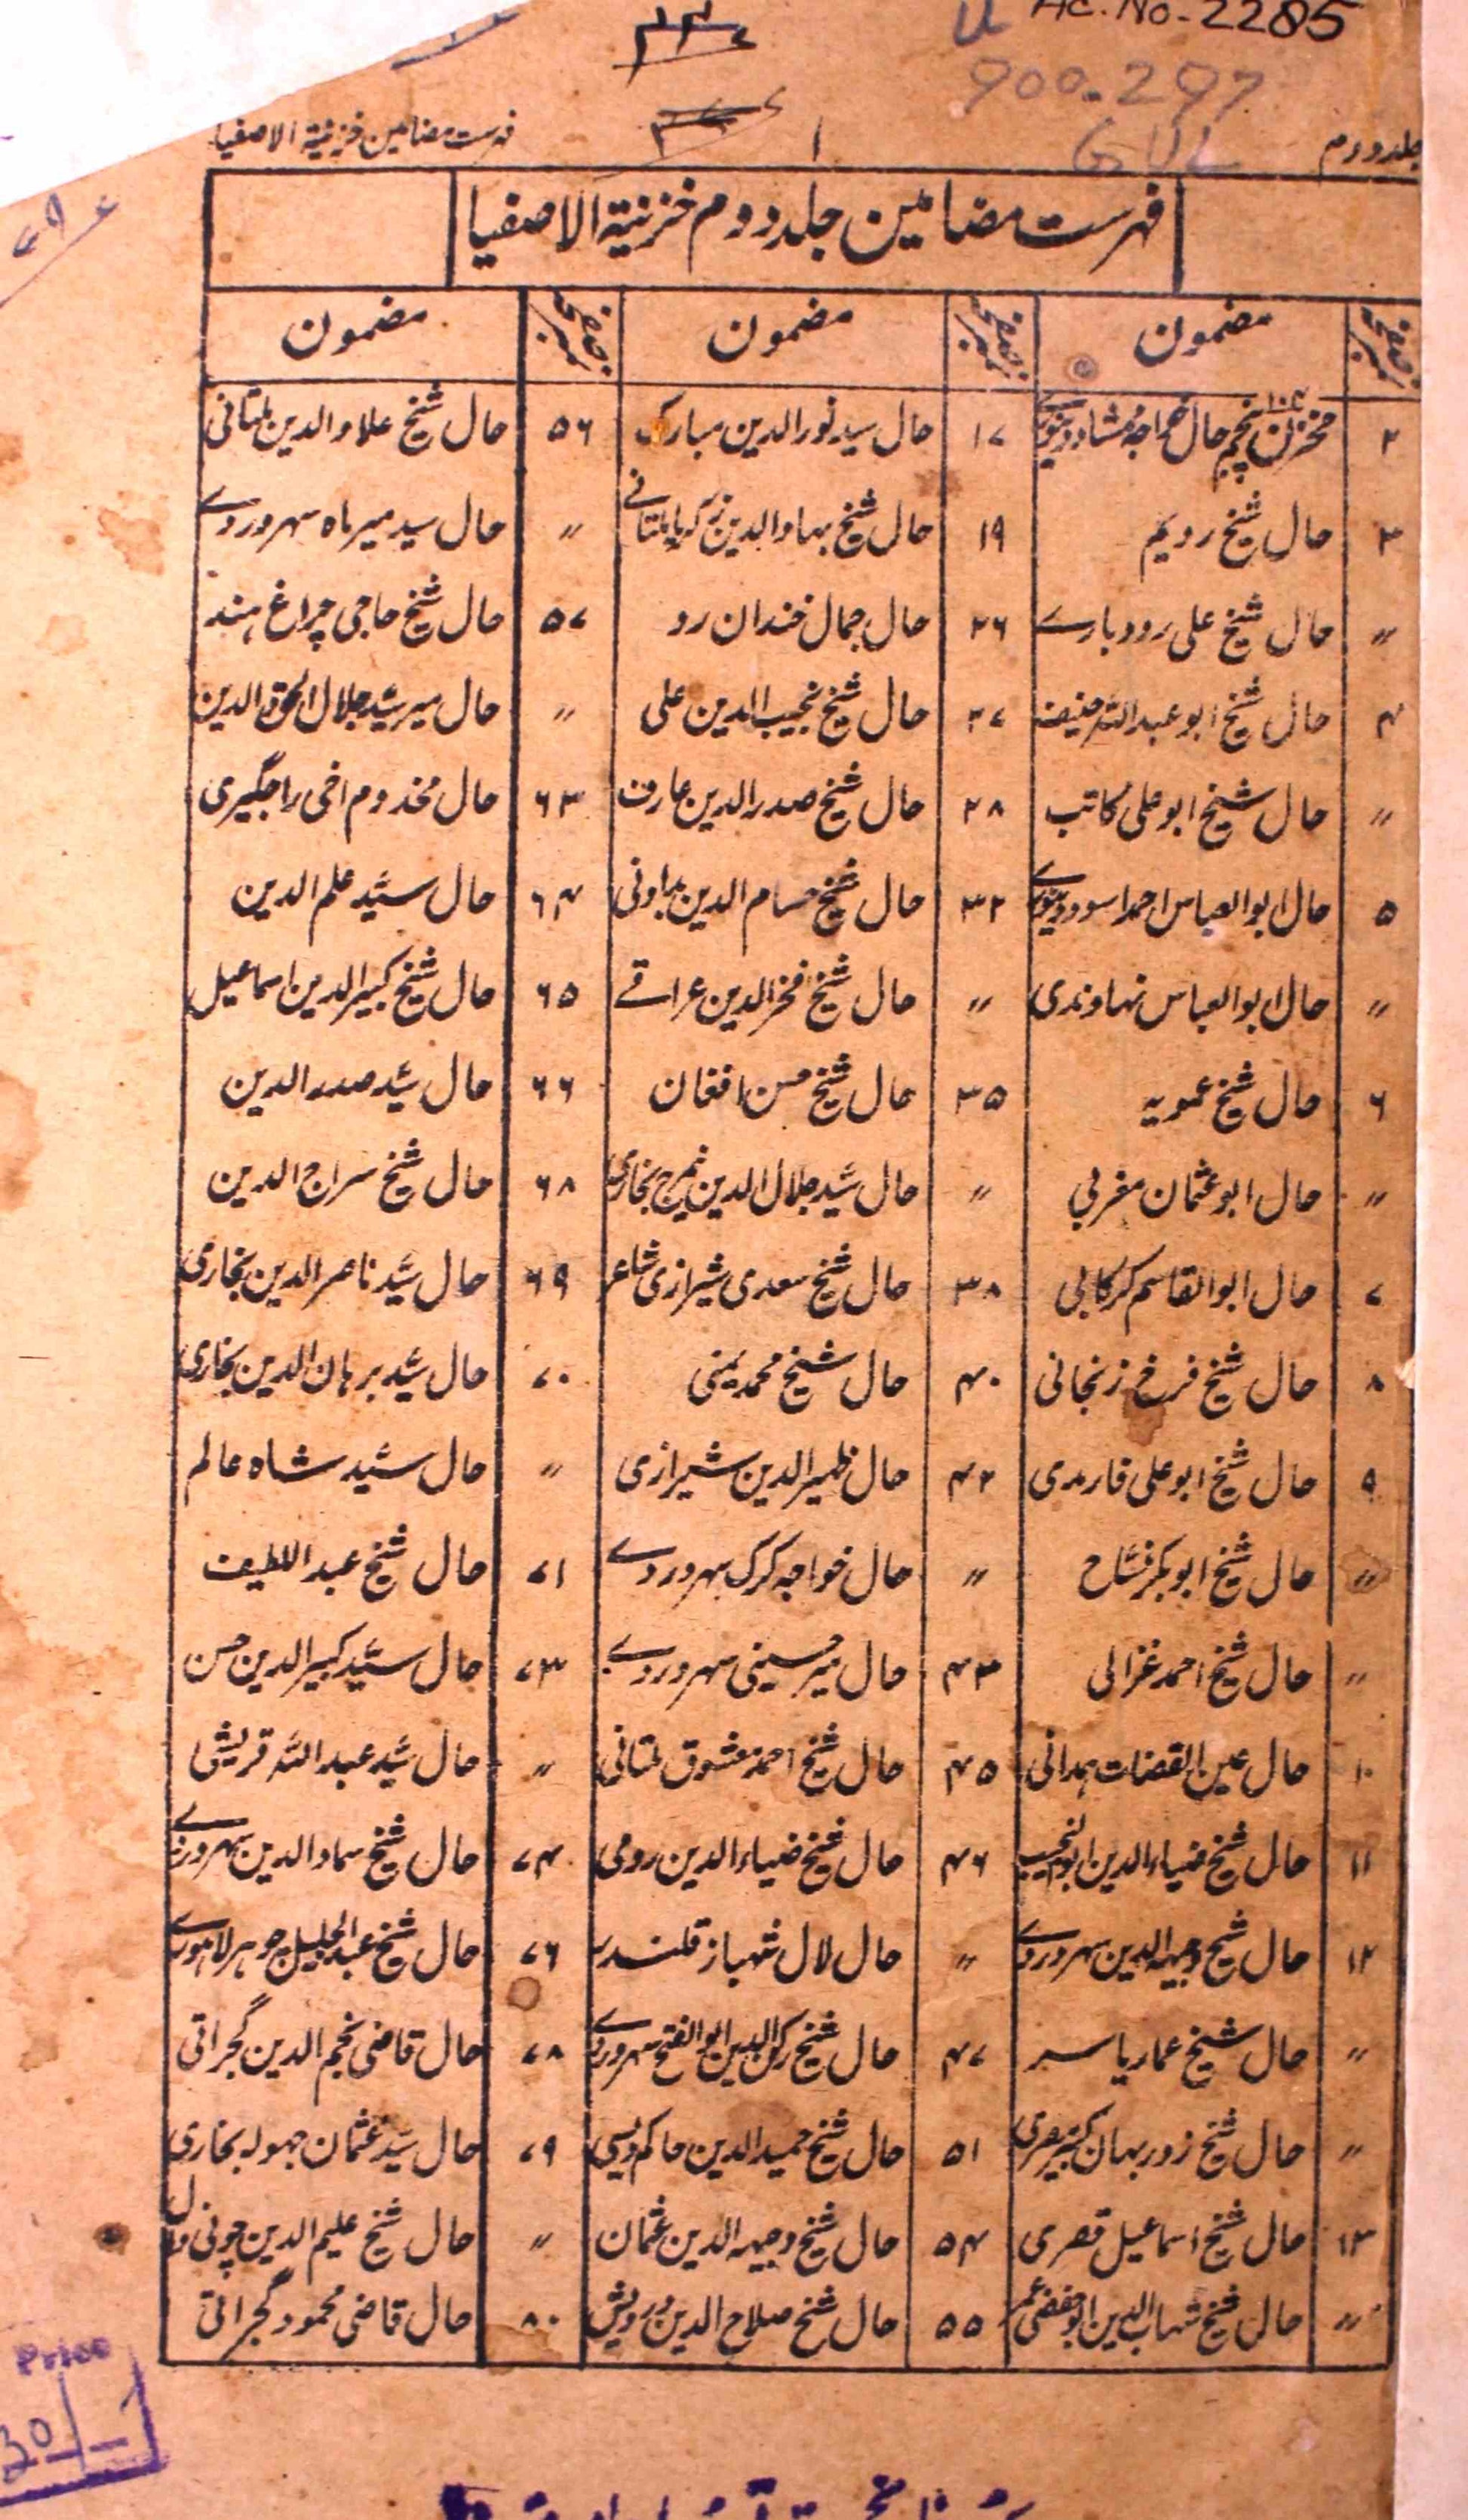 Ac. No - 2285
900.297
GUL
جلد دوم
۱
فہرست مضامین خزینۃ الاصفیا
فہرست مضامین جلد دوم خزینۃ الاصفیا
نمبر صفحہ مضمون نمبر صفحہ مضمون نمبر صفحہ مضمون
۲ مخزن پنجم حال خواجہ ممشاد دینوری ۱۷ حال سید نورالدین مبارک ۵۶ حال شیخ علاوالدین ملتانی
۳ حال شیخ رویم ۱۹ حال شیخ بہاوالدین زکریا ملتانے ″ حال سید میر ماہ سہروردے
″ حال شیخ علی رودبارے ۲۶ حال جمال خندان رو ۵۷ حال شیخ حاجی چراغ ہند
۴ حال شیخ ابو عبداللہ خفیف ۲۷ حال شیخ نجیب الدین علی ″ حال میر سید جلال الحق والدین
″ حال شیخ ابو علی کاتب ۲۸ حال شیخ صدرالدین عارف ۶۳ حال مخدوم اخی راجگیری
۵ حال ابوالعباس احمد اسود دینورے ۳۲ حال شیخ حسام الدین بداونی ۶۴ حال سید علم الدین
″ حال ابوالعباس نہاوندی ″ حال شیخ فخرالدین عراقے ۶۵ حال شیخ کبیرالدین اسماعیل
۶ حال شیخ عمویہ ۳۵ حال شیخ حسن افغان ۶۶ حال سید صدرالدین
″ حال ابو عثمان مغربی ″ حال سید جلال الدین سرخ بخاری ۶۸ حال شیخ سراج الدین
۷ حال ابوالقاسم گرگانی ۳۸ حال شیخ سعدی شیرازی شاعر ۶۹ حال سید ناصرالدین بخاری
۸ حال شیخ فرخ زنجانی ۴۰ حال شیخ محمد یمنی ۷۰ حال سید برہان الدین بخاری
۹ حال شیخ ابو علی فارمدی ۴۲ حال ظہیرالدین شیرازی ″ حال سید شاہ عالم
″ حال شیخ ابوبکر نساج ″ حال خواجہ کرک سہروردے ۷۱ حال شیخ عبداللطیف
″ حال شیخ احمد غزالی ۴۳ حال میر حسینی سہروردے ۷۳ حال سید کبیرالدین حسن
۱۰ حال عین القضات ہمدانی ۴۵ حال شیخ احمد معشوق ملتانی ″ حال سید عبداللہ قریشی
۱۱ حال شیخ ضیاءالدین ابوالنجیب ۴۶ حال شیخ ضیاءالدین رومی ۷۴ حال شیخ سماوالدین سہروردے
۱۲ حال شیخ وجیہ الدین سہروردے ″ حال لال شہباز قلندر ۷۶ حال شیخ عبدالجلیل جوہر لاہورے
″ حال شیخ عمار یاسر ۴۷ حال شیخ رکن الدین ابوالفتح سہروردے ۷۸ حال قاضی نجم الدین گجراتی
″ حال شیخ زوربہان کبیر مصری ۵۱ حال شیخ حمیدالدین حاکم اویسی ۷۹ حال سید عثمان جھولہ بخاری
۱۳ حال شیخ اسماعیل قصری ۵۴ حال شیخ وجیہہ الدین عثمان ″ حال شیخ علیم الدین چونی وال
″ حال شیخ شہاب الدین ابوحفص عمر ۵۵ حال شیخ صلاح الدین درویش ۸۰ حال قاضی محمود گجراتی
Price
30